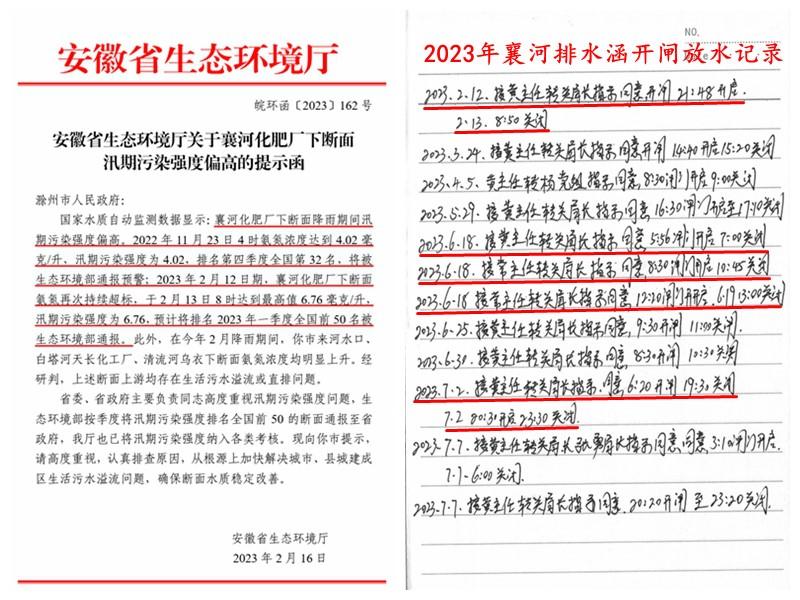 安徽省生态环境厅
皖环函〔2023〕162号
安徽省生态环境厅关于襄河化肥厂下断面
汛期污染强度偏高的提示函
滁州市人民政府：
国家水质自动监测数据显示：襄河化肥厂下断面降雨期间汛
期污染强度偏高。2022年11月23日4时氨氮浓度达到4.02毫
克/升，汛期污染强度为4.02，排名第四季度全国第32名，将被
生态环境部通报预警；2023年2月12日期，襄河化肥厂下断面
氨氮再次持续超标，于2月13日8时达到最高值6.76毫克/升，
汛期污染强度为6.76，预计将排名2023年一季度全国前50名被
生态环境部通报。此外，在今年2月降雨期间，你市来河水口、
白塔河天长化工厂、清流河乌衣下断面氨氮浓度均明显上升。经
研判，上述断面上游均存在生活污水溢流或直排问题。
省委、省政府主要负责同志高度重视汛期污染强度问题，生
态环境部按季度将汛期污染强度排名全国前50的断面通报至省
政府，我厅也已将汛期污染强度纳入各类考核。现向你市提示，
请高度重视，认真排查原因，从根源上加快解决城市、县城建成
区生活污水溢流问题，确保断面水质稳定改善。
安徽省生态环境厅
2023年2月16日
NO.
2023年襄河排水涵开闸放水记录
2023.2.12.接黄主任转关局长指示同意开闸 21:48开启.
2.13. 8:50关闭
2023.3.24.接黄主任转关局长指示同意开闸 14:40开启 15:20关闭
2023.4.5.黄主任转杨党组指示同意,8:30闸门开启 9:00关闭
2023.5.29.接黄主任转关局长指示同意,16:30闸门开启至17:10关闭
2023.6.18.接黄主任转关局长指示同意 5:56闸门开启 7:00关闭
2023.6.18.接常主任转关局长指示同意 8:30闸门开启 10:45关闭
2023.6.18 接常主任转关局长指示同意,12:20闸门开启. 6.19 13:00关闭
2023.6.25.接黄主任转关局长指示同意,9:30开闸 11:00关闭.
2023.6.30.接黄主任转关局长指示同意 8:30开闸 10:30关闭
2023.7.2.接黄主任转关局长指示.同意 6:20开闸 19:30关闭
7.2 20:30开启 23:30关闭.
2023.7.7.接黄主任转关局长 局长指示同意,同意 3:10闸门开启.
7.7-6:00关闭.
2023.7.7.接黄主任转关局长指示同意. 20:20开闸 至 23:20关闭.